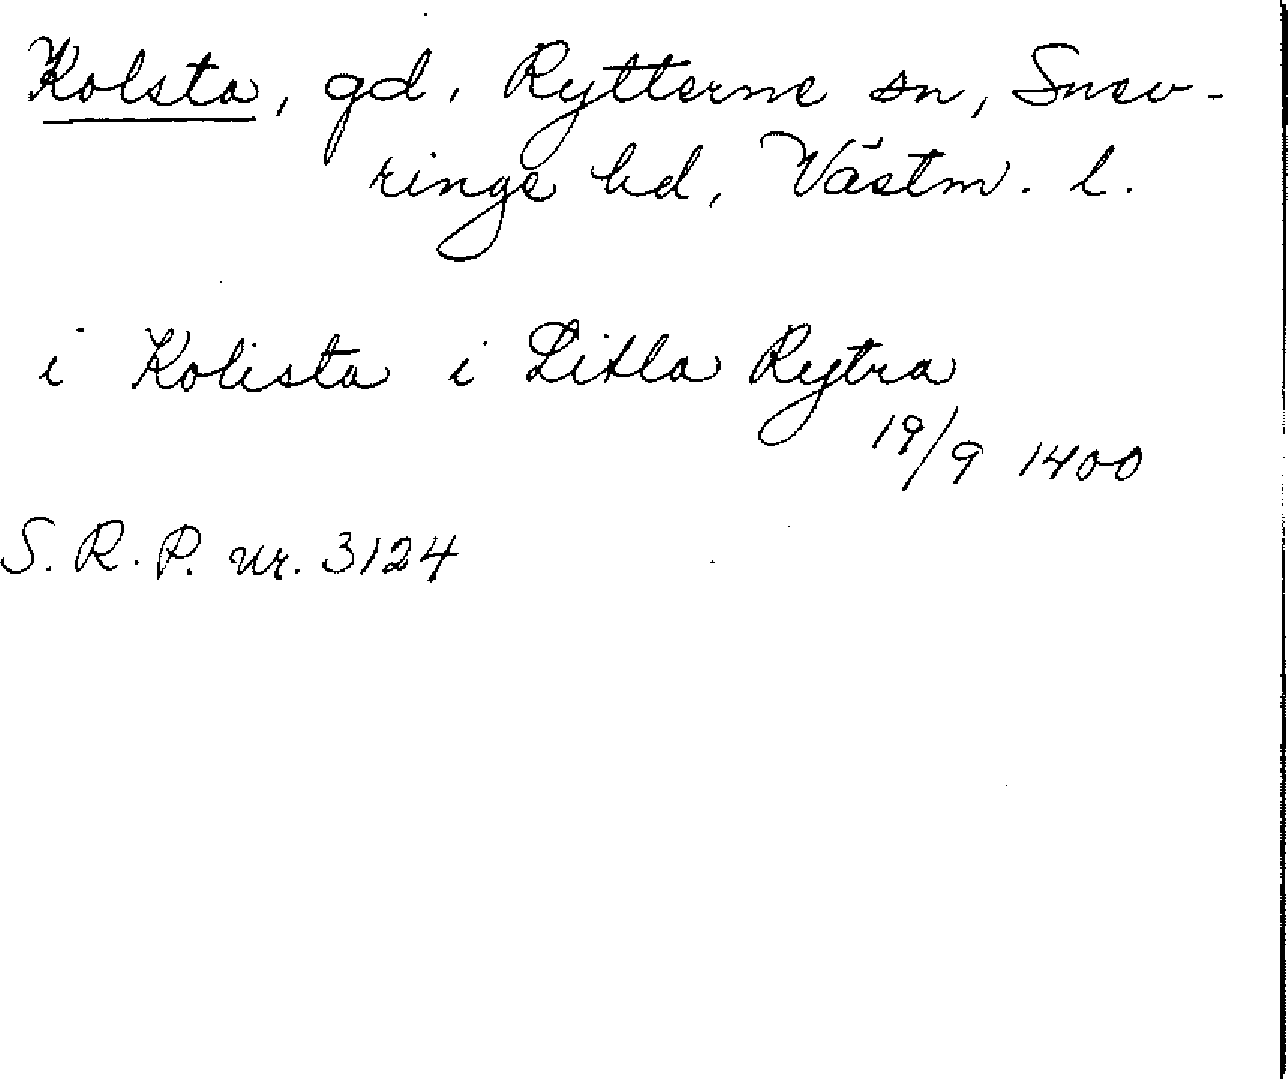 Kolsta, gd, Rytterne sn, Snev-
ringe hd, Västm. l.
i Kolista i Litla Rytra
19/9 1400
S. R. P. nr. 3124